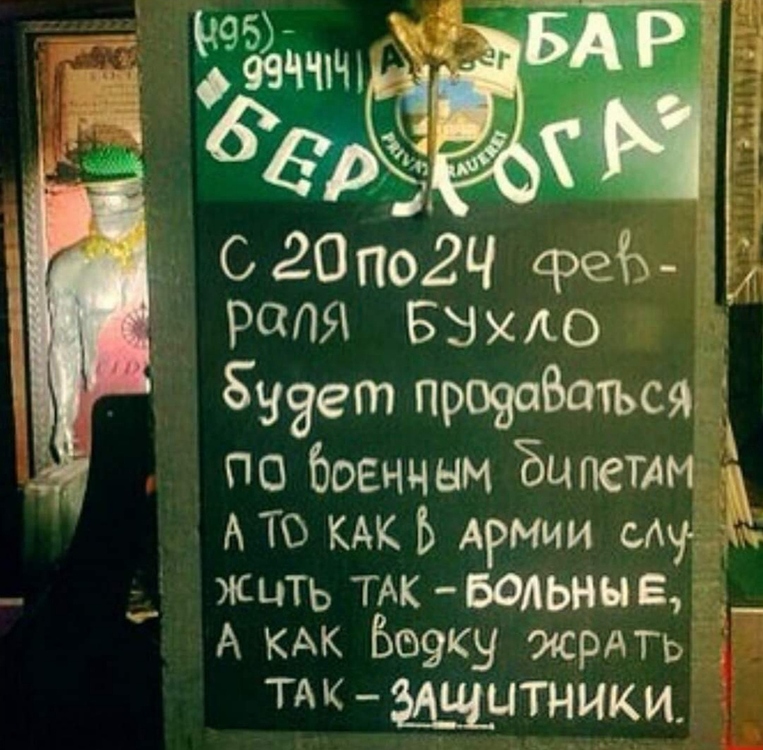 (495)-
9944141
БАР
"БЕРЛОГА"
PRIVATBRAUEREI
С 20 по 24 фев-
раля БУХЛО
будет продаваться
по военным билетам
А ТО КАК В АРМИИ слу-
жить ТАК - БОЛЬНЫЕ,
А КАК водку жрать
ТАК - ЗАЩИТНИКИ.